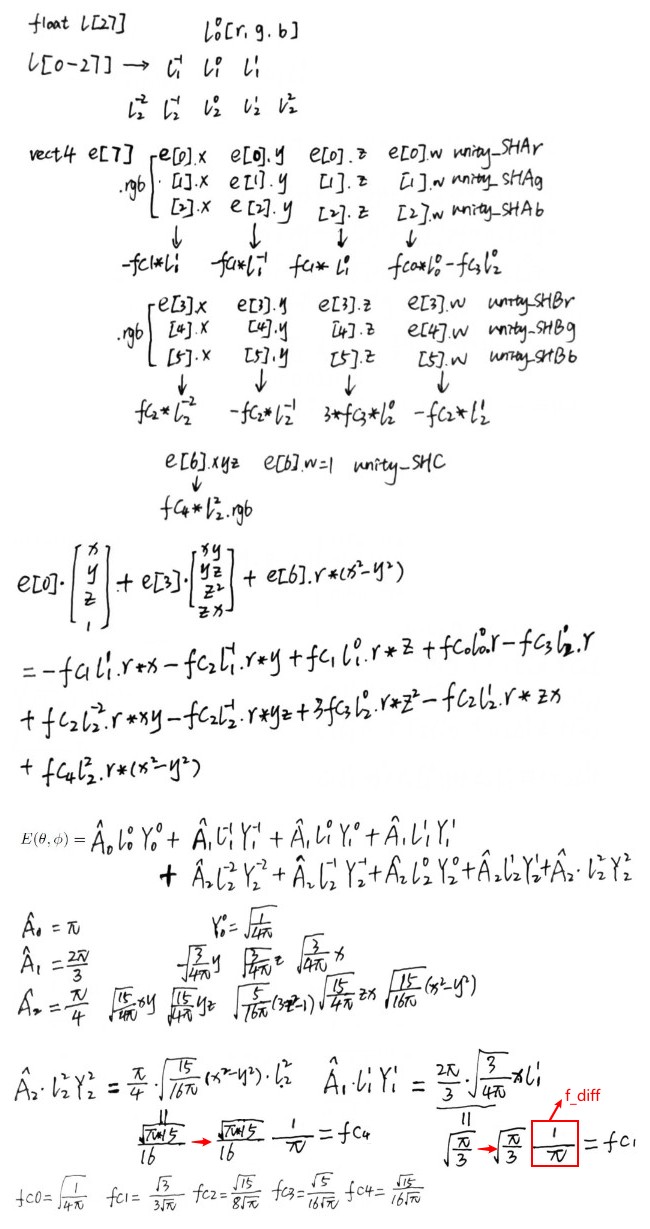 float l[27] l₀⁰[r, g, b]
l[0-27] → l₁⁻¹ l₁⁰ l₁¹
l₂⁻² l₂⁻¹ l₂⁰ l₂¹ l₂²
vect4 e[7] e[0].x e[0].y e[0].z e[0].w unity_SHAr
.rgb [1].x e[1].y [1].z [1].w unity_SHAg
[2].x e[2].y [2].z [2].w unity_SHAb
↓ ↓ ↓ ↓
-fC1*l₁¹ -fC1*l₁⁻¹ fC1*l₁⁰ fC0*l₀⁰-fC3l₂⁰
e[3].x e[3].y e[3].z e[3].w unity_SHBr
.rgb [4].x [4].y [4].z e[4].w unity_SHBg
[5].x [5].y [5].z [5].w unity_SHBb
↓ ↓ ↓ ↓
fC2*l₂⁻² -fC2*l₂⁻¹ 3*fC3*l₂⁰ -fC2*l₂¹
e[6].xyz e[6].w=1 unity_SHC
↓
fC4*l₂².rgb
e[0]·[x y z 1] + e[3]·[xy yz z² zx] + e[6].r*(x²-y²)
= -fC1l₁¹.r*x - fC2l₁⁻¹.r*y + fC1l₁⁰.r*z + fC0l₀⁰.r - fC3l₂⁰.r
+ fC2l₂⁻².r*xy - fC2l₂⁻¹.r*yz + 3fC3l₂⁰.r*z² - fC2l₂¹.r*zx
+ fC4l₂².r*(x²-y²)
E(θ,ϕ) = Â₀l₀⁰Y₀⁰ + Â₁l₁⁻¹Y₁⁻¹ + Â₁l₁⁰Y₁⁰ + Â₁l₁¹Y₁¹
+ Â₂l₂⁻²Y₂⁻² + Â₂l₂⁻¹Y₂⁻¹ + Â₂l₂⁰Y₂⁰ + Â₂l₂¹Y₂¹ + Â₂·l₂²Y₂²
Â₀ = π Y₀⁰ = √(1/4π)
Â₁ = 2π/3 -√(3/4π)y √(3/4π)z √(3/4π)x
Â₂ = π/4 √(15/4π)xy √(15/4π)yz √(5/16π)(3z²-1) √(15/4π)zx √(15/16π)(x²-y²)
Â₂·l₂²Y₂² = π/4·√(15/16π)(x²-y²)·l₂² Â₁·l₁¹Y₁¹ = 2π/3·√(3/4π)xl₁¹
f_diff
√(π*15)/16 → √(π*15)/16 1/π = fC4 √(π/3) → √(π/3) 1/π = fC1
fC0=√(1/4π) fC1=√3/3√π fC2=√15/8√π fC3=√5/16√π fC4=√15/16√π